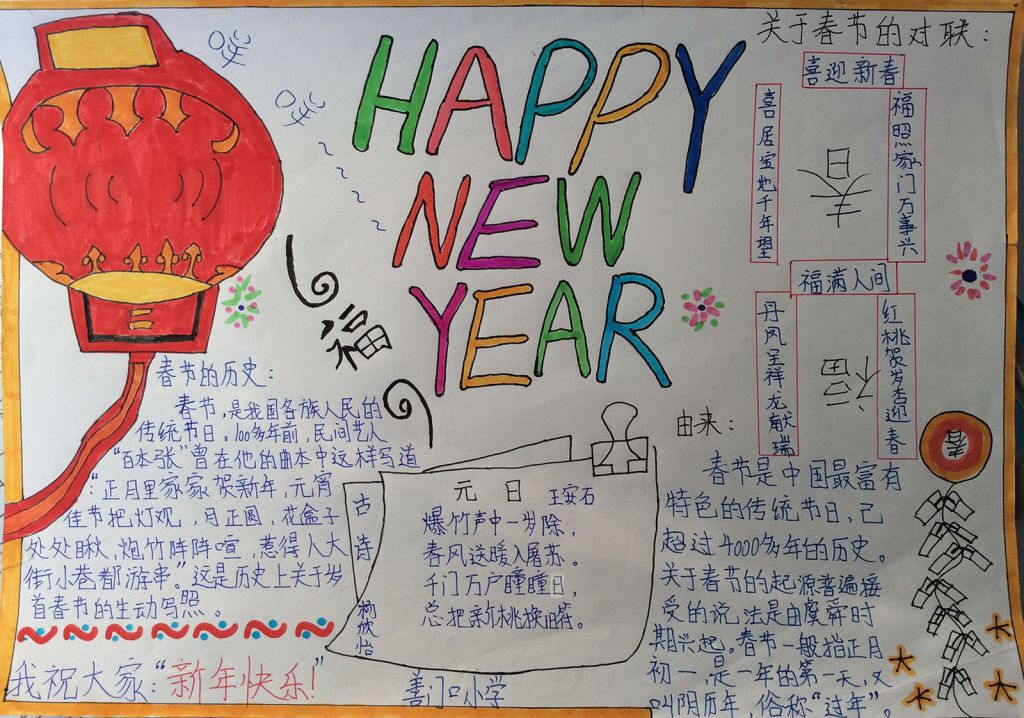 HAPPY
NEW
YEAR
福
关于春节的对联：
喜迎新春
喜居宝地千年望
福照家门万事兴
春
福满人间
丹凤呈祥龙献瑞
红桃贺岁杏迎春
福
春节的历史：
春节，是我国各族人民的
传统节日。100多年前，民间艺人
“百本张”曾在他的曲本中这样写道
：“正月里家家贺新年，元宵
佳节把灯观，月正圆，花盒子
处处瞅，炮竹阵阵喧，惹得人大
街小巷都游串”。这是历史上关于岁
首春节的生动写照。
我祝大家：“新年快乐！”
古诗
杨欣怡
元日 王安石
爆竹声中一岁除，
春风送暖入屠苏。
千门万户瞳瞳日，
总把新桃换旧符。
善门口小学
由来：
春节是中国最富有
特色的传统节日，已
超过4000多年的历史。
关于春节的起源普遍接
受的说法是由虞舜时
期兴起。春节一般指正月
初一，是一年的第一天，又
叫阴历年，俗称“过年”。
春